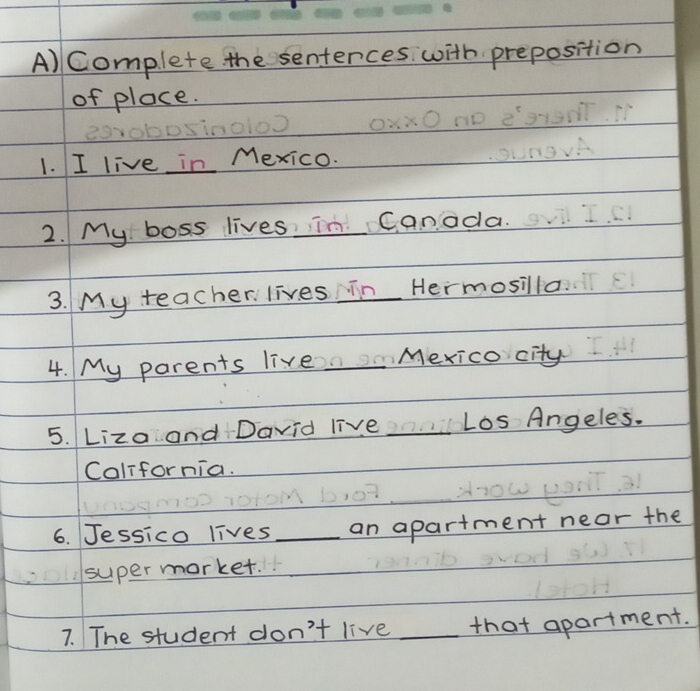 A) Complete the sentences with preposition
of place.
1. I live in Mexico.
2. My boss lives in Canada.
3. My teacher lives in Hermosilla.
4. My parents live ____ Mexico city
5. Liza and David live ____ Los Angeles.
California.
6. Jessica lives ____ an apartment near the
super market.
7. The student don't live ____ that apartment.